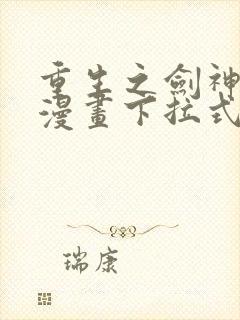 重生之劍神
漫畫下拉式
瑞康